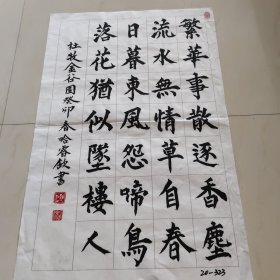 繁華事散逐香塵
流水無情草自春
日暮東風怨啼鳥
落花猶似墜樓人
杜牧金谷園癸卯春哈睿欽書
20-323